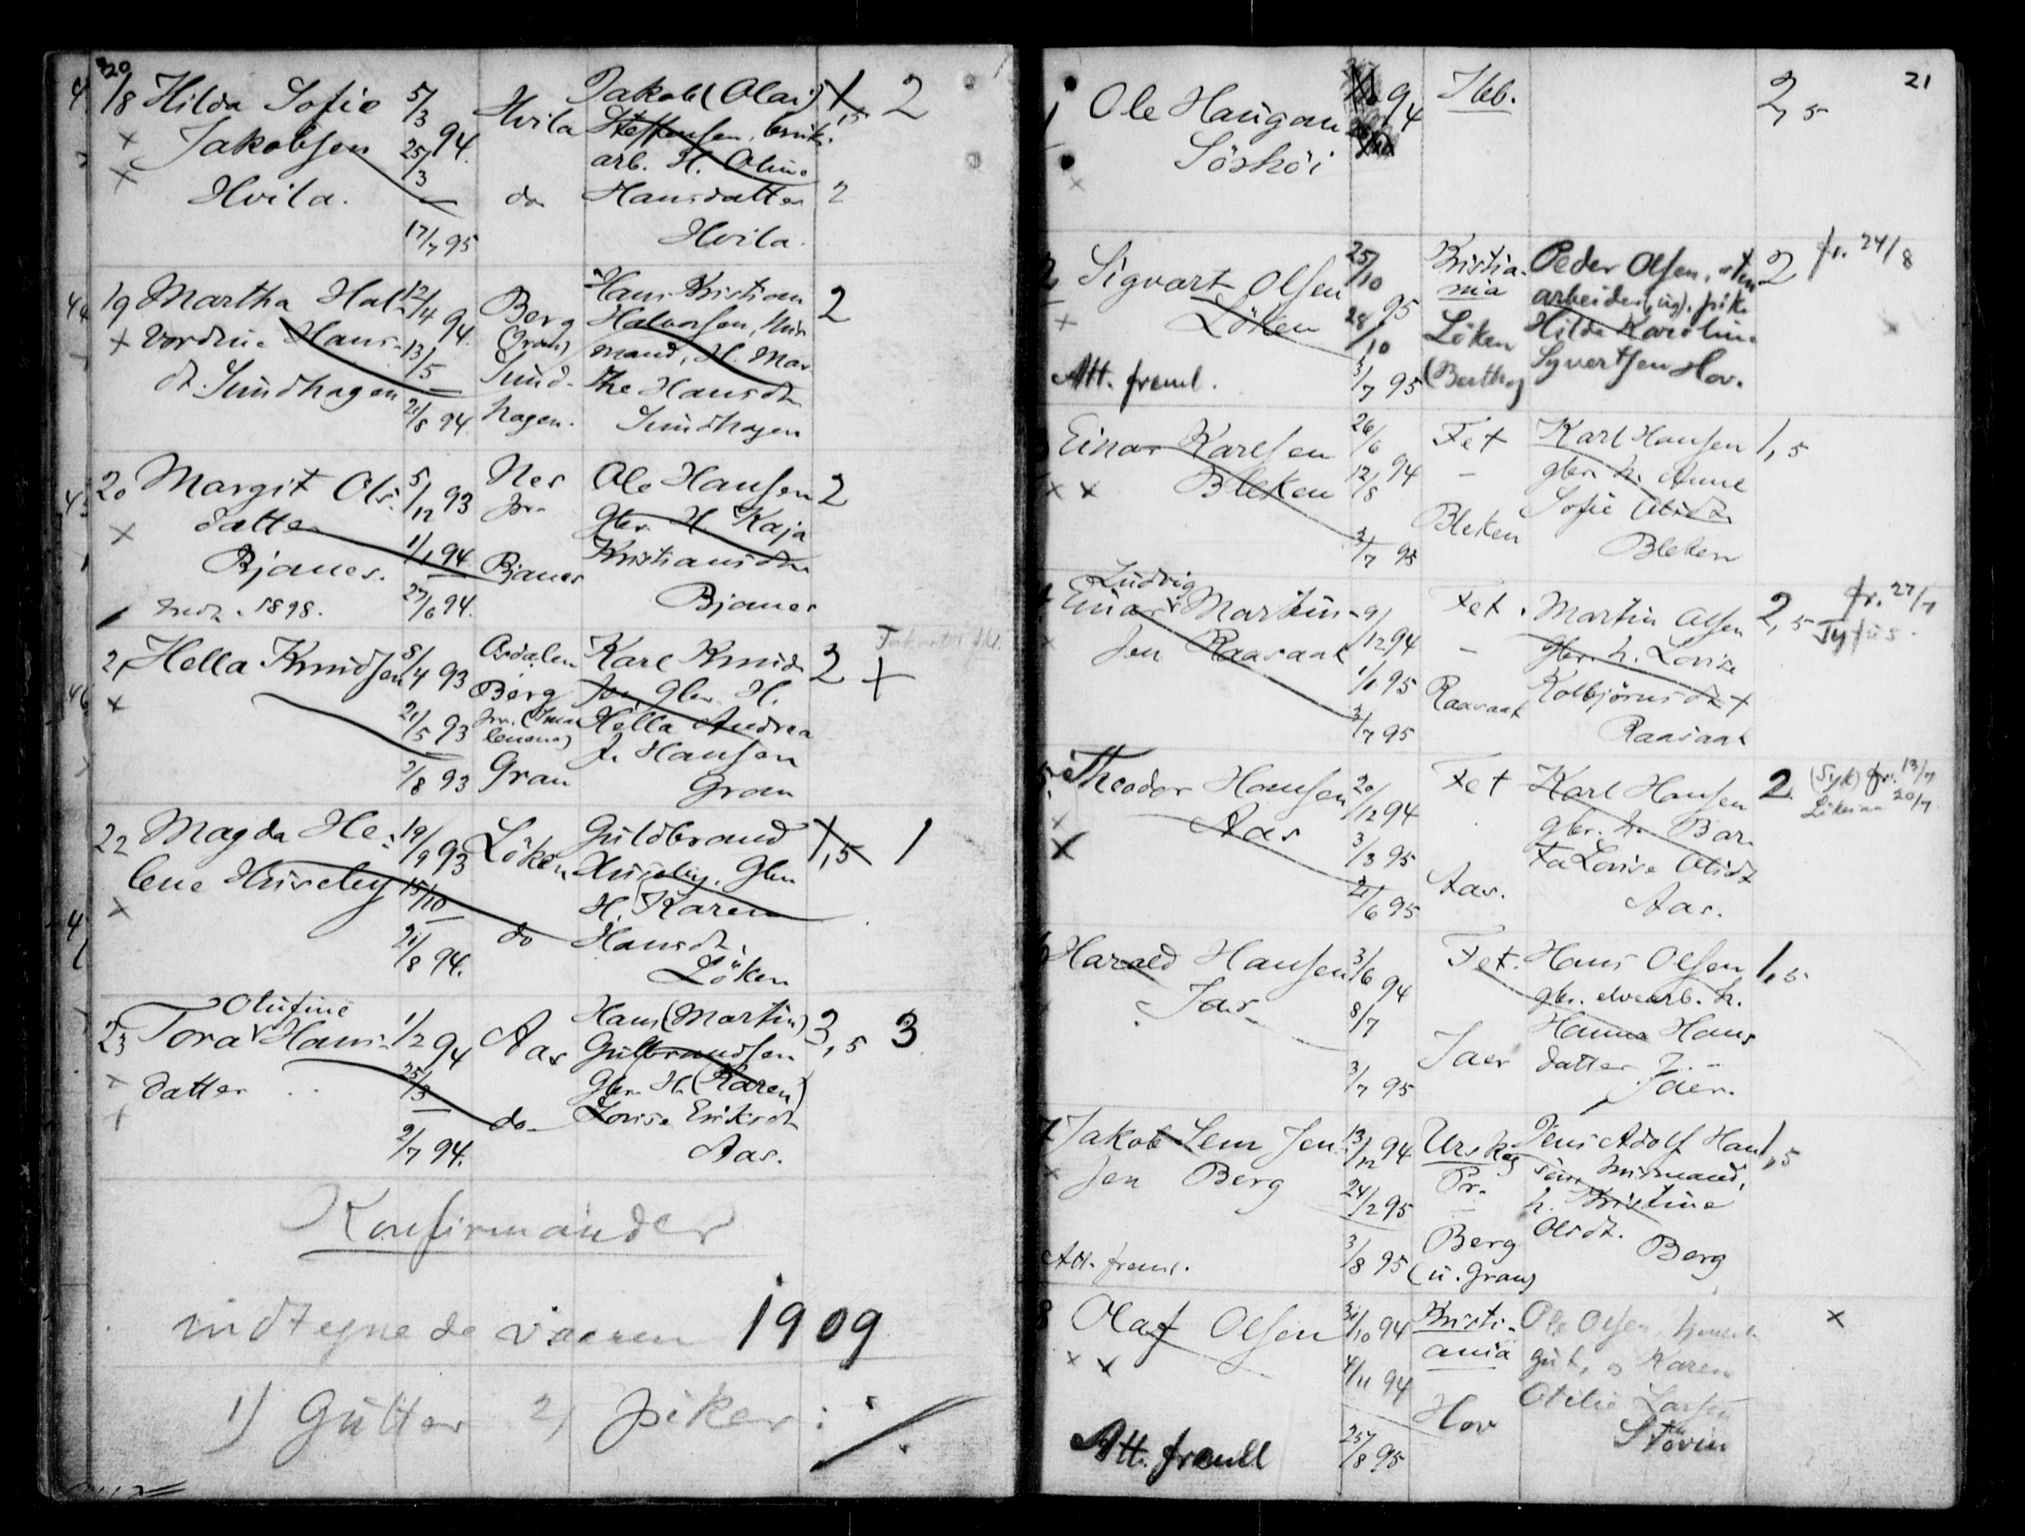 20
18 Hilda Sofie 5/3 94. Hvila Jakob (Olai) 1,5 2
Jakobsen 25/3 Steffensen, bruks.
arb. H. Oline
Hvila. do Hansdatter 2
17/7 95 Hvila.
19 Martha Hal- 12/4 94. Berg Hans Kristian 2
vordine Hans- 13/5 (Gran) Halvorsen, Mur
dt. Sundhagen Sund- mand, H. Mar
21/8 94 hagen. the Hansdt.
Sundhagen
20 Margit Ols- 5/12 93 Nes Ole Hansen 2
datter pr. Gbr. H. Kaja
1/1 94 Bjanes Kristiansdt.
Bjanes. 27/6 94. Bjanes
Indt. 1898.
21 Hella Knudsen 5/4 93 Asdalen Karl Knud 2 +
Berg sen, Gbr. H.
21/5 93 Hella Andrea
f. Hansen
2/8 93 Gran Gran
22 Magda He- 19/9 93 Löken Guldbrand 1,5 1
lene Huseby 15/10 Huseby, Gbr.
H. (Karen
do Hansdt.
21/8 94. Löken
Olufine
23 Tora Hans- 1/2 94 Aas Hans (Martin) 3,5 3
datter 25/3 Gulbrandsen
Gbr. H. (Karen)
do Lovise Eriksdt.
2/7 94. Aas.
Konfirmander
indtegnede vaaren 1909
1) Gutter 2) piker :
21
1 Ole Haugan 94 Ibb. 2,5
Söshöi
2 Sigvart Olsen 25/10 95 Kristia- Peder Olsen, sten 2 fr. 24/8
Löken nia arbeider, ug. pike
28/10 Löken Hilda Karoline
Att. freml. 3/7 95 (Berthe) Syvertsen Hov.
3 Einar Karlsen 26/6 94 Fet Karl Hansen 1,5
Bleken 12/8 – gbr. h. Anne
Bleken Sofie Olsdt.
3/7 95 Bleken
Ludvig
4 Einar Martin- 9/12 94 Fet. Martin Olsen 2,5 fr. 27/7
sen Raasaak – gbr. h. Lovise Tyfus.
1/1 95 Raasaak Kolbjörnsdt +
3/7 95 Raasaak
5 Theodor Hansen 20/12 94 Fet Karl Hansen 2 (Syk) fr. 13/7
Aas gbr. h. Ber 20/7
3/3 95 ta Lovise Olsdt
21/6 95 Aas. Aas.
6 Harald Hansen 3/6 94 Fet. Hans Olsen 1,5
Jar 8/7 gbr. elvearb. h.
Hanna Hans
Jaer datter
3/7 95 Jäer.
7 Jakob Lem Jen- 13/12 94 Urskog Jens Adolf Han 1,5
sen Berg Pr. sen murmand,
24/2 95 – h. Kristine
Berg Olsdt.
Att. freml. 3/8 95 (u. Gran) Berg
8 Olaf Olsen 31/10 94 Kristi- Ole Olsen, x
ania gut, og Karen
4/11 94 Otilie Larsen
Hov Stövin
Att. freml 25/8 95